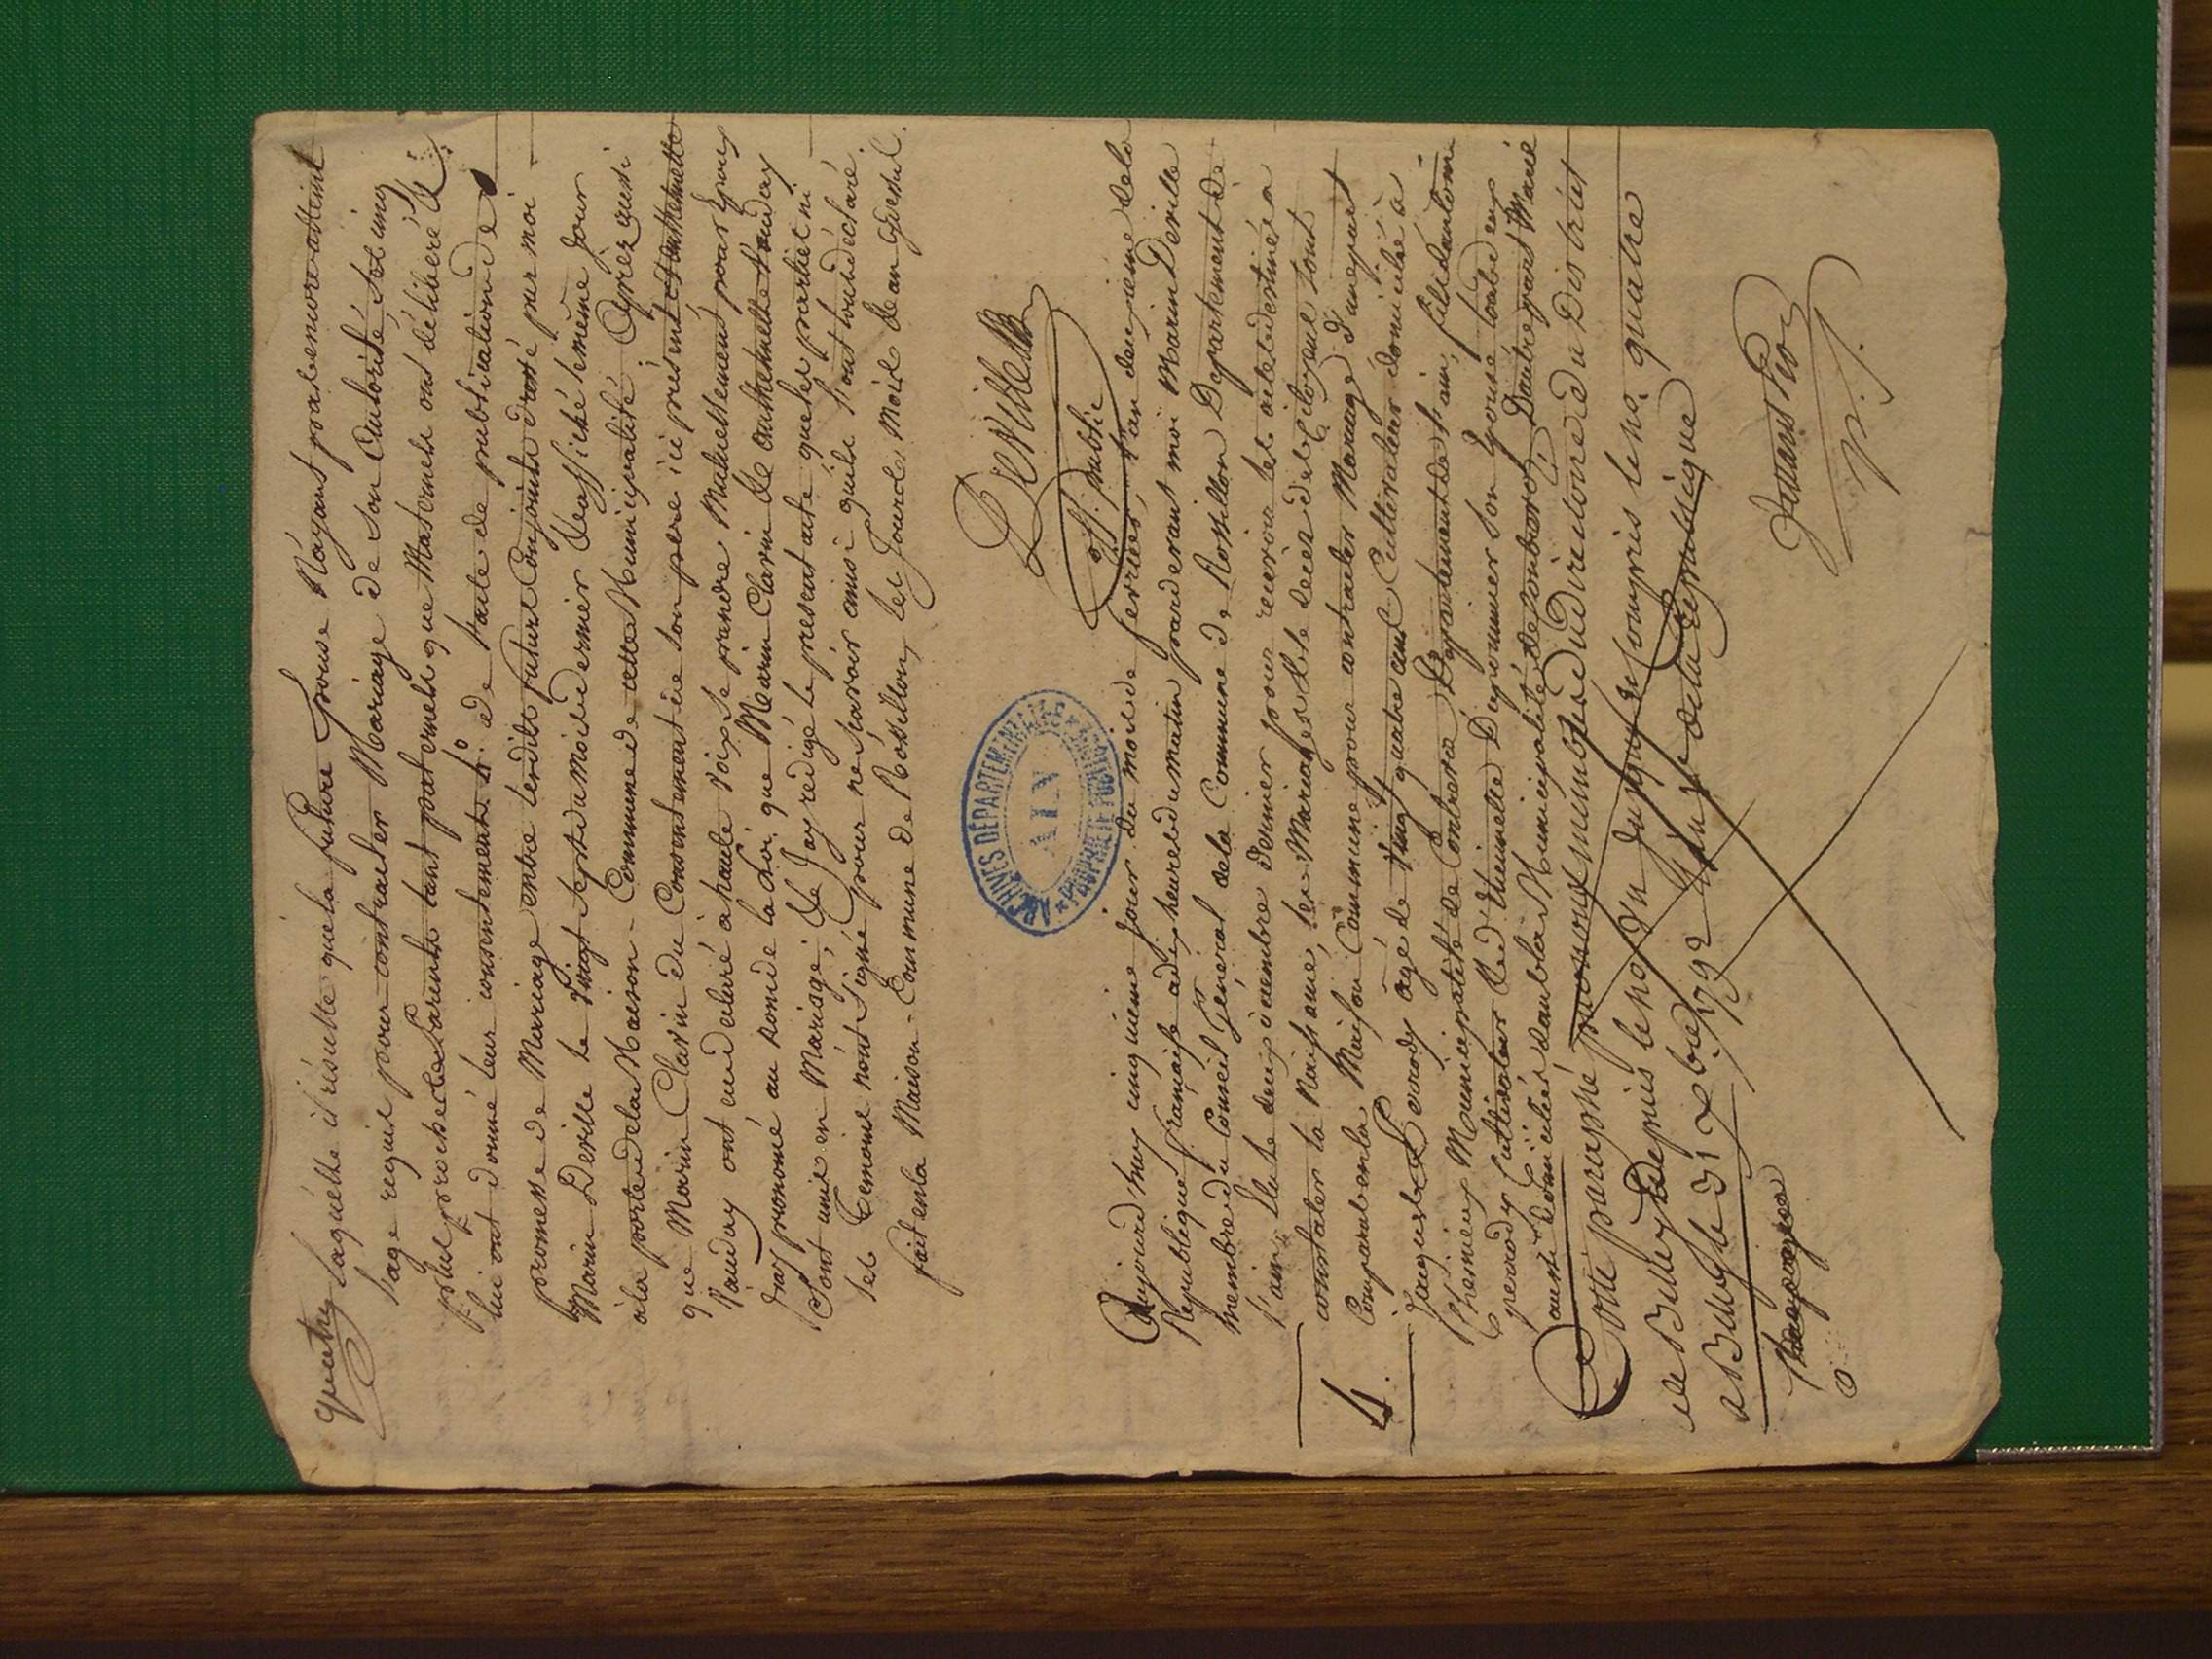 quatre
laquelle il résulte que la future Epouse N'ayant pas encore atteint
l'age requis pour contracter Mariage de son Authorité, Les cinq
plus proches Parents tant paternels que Maternels ont délibéré &
lui ont donné leur consentement; 4.° de l'acte de publication de
promesse de Mariage entre lesdits futurs Conjoints dressé par moi
Marin Deville le Vingt sept du mois dernier & affiché le même Jour
à la porte de la Maison-Commune de cette Municipalité; Après aussi
que Marin Clavin du Consentement de son père ici présent &
ont eu déclaré à haute voix se prendre Mutuellement pour Epoux
J'ay prononcé au nom de la Loi que Marin Clavin &
Sont unis en Mariage; & J'ay rédigé le présent acte que les parties ni
les Temoins n'ont signé pour ne sçavoir ainsi qu'ils l'ont tous déclaré.
fait en la Maison-Commune de Rossillon, les Jour & Mois & an que dessus.
Deville
off. public
ARCHIVES DÉPARTEMENTALES
AIN
PROPRIÉTÉ PUBLIQUE
Aujourd'huy cinquième jour du mois de fevrier, l'an deuxieme de la
Republique française à dix heures du matin pardevant moi Marin Deville
membre du Conseil Général de la Commune de Rossillon Departement de
l'ain Elu le deux décembre dernier pour recevoir les actes destinés à
constater la Naissance, les Mariages & le décès des Citoyens, sont
Comparus en la Maison Commune pour contracter Mariage d'une part
4.
Jacques agé de Vingt quatre ans Cultivateur domicilié à
Municipalité de Contrevoz Departement de l'ain, fils d'antoine
Cultivateur & d' son Epouse
aussi domiciliés dans la Municipalité de Contrevoz, D'autre part Marie
Cotté paraphé par nous membre du Directoire du District
de Belley Depuis le no. Un Jusques Compris le no. quatre
a Belley le 31 Xbre 1792 L'an 1 de la Republique
Jacques